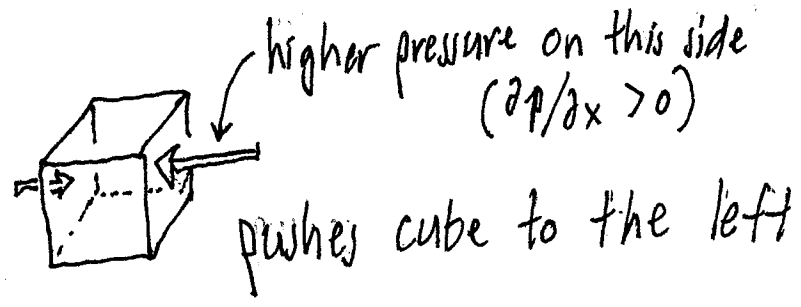 higher pressure on this side
(∂p/∂x > 0)
pushes cube to the left